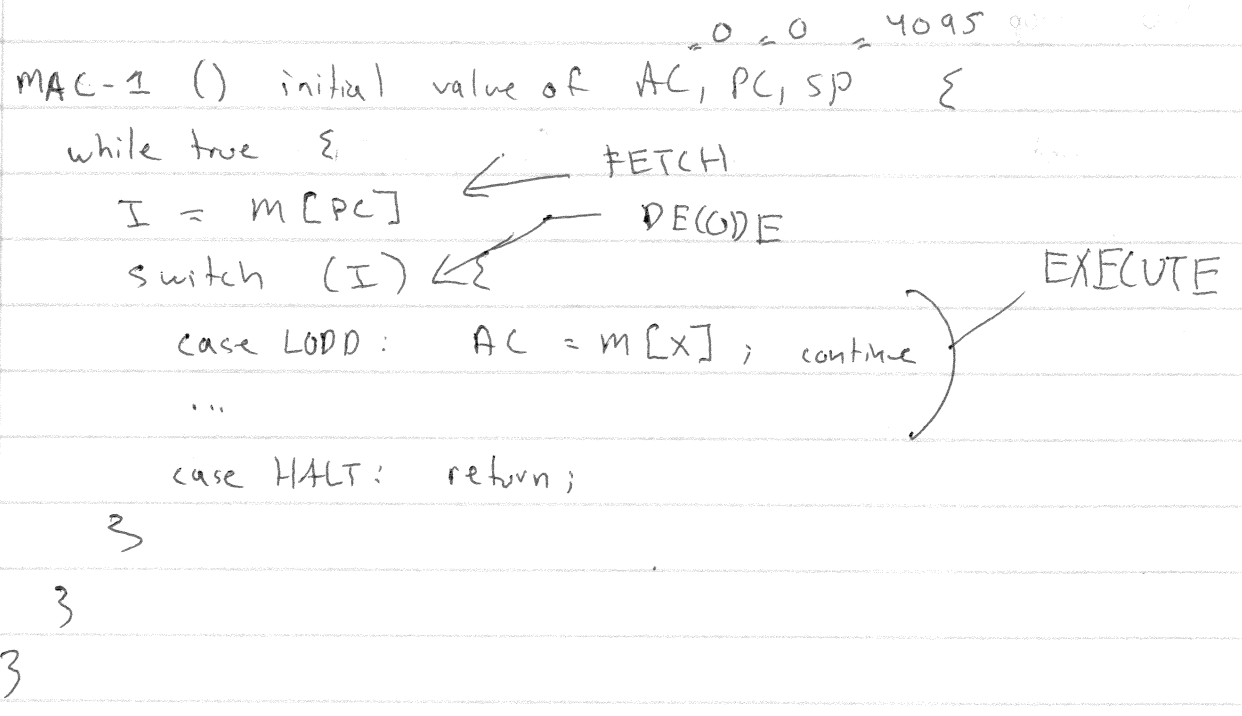 =0 =0 =4095
MAC-1 () initial value of AC, PC, SP {
while true {
FETCH
I = m[PC]
DECODE
switch (I) {
EXECUTE
case LODD: AC = m[X]; continue
...
case HALT: return;
}
}
}